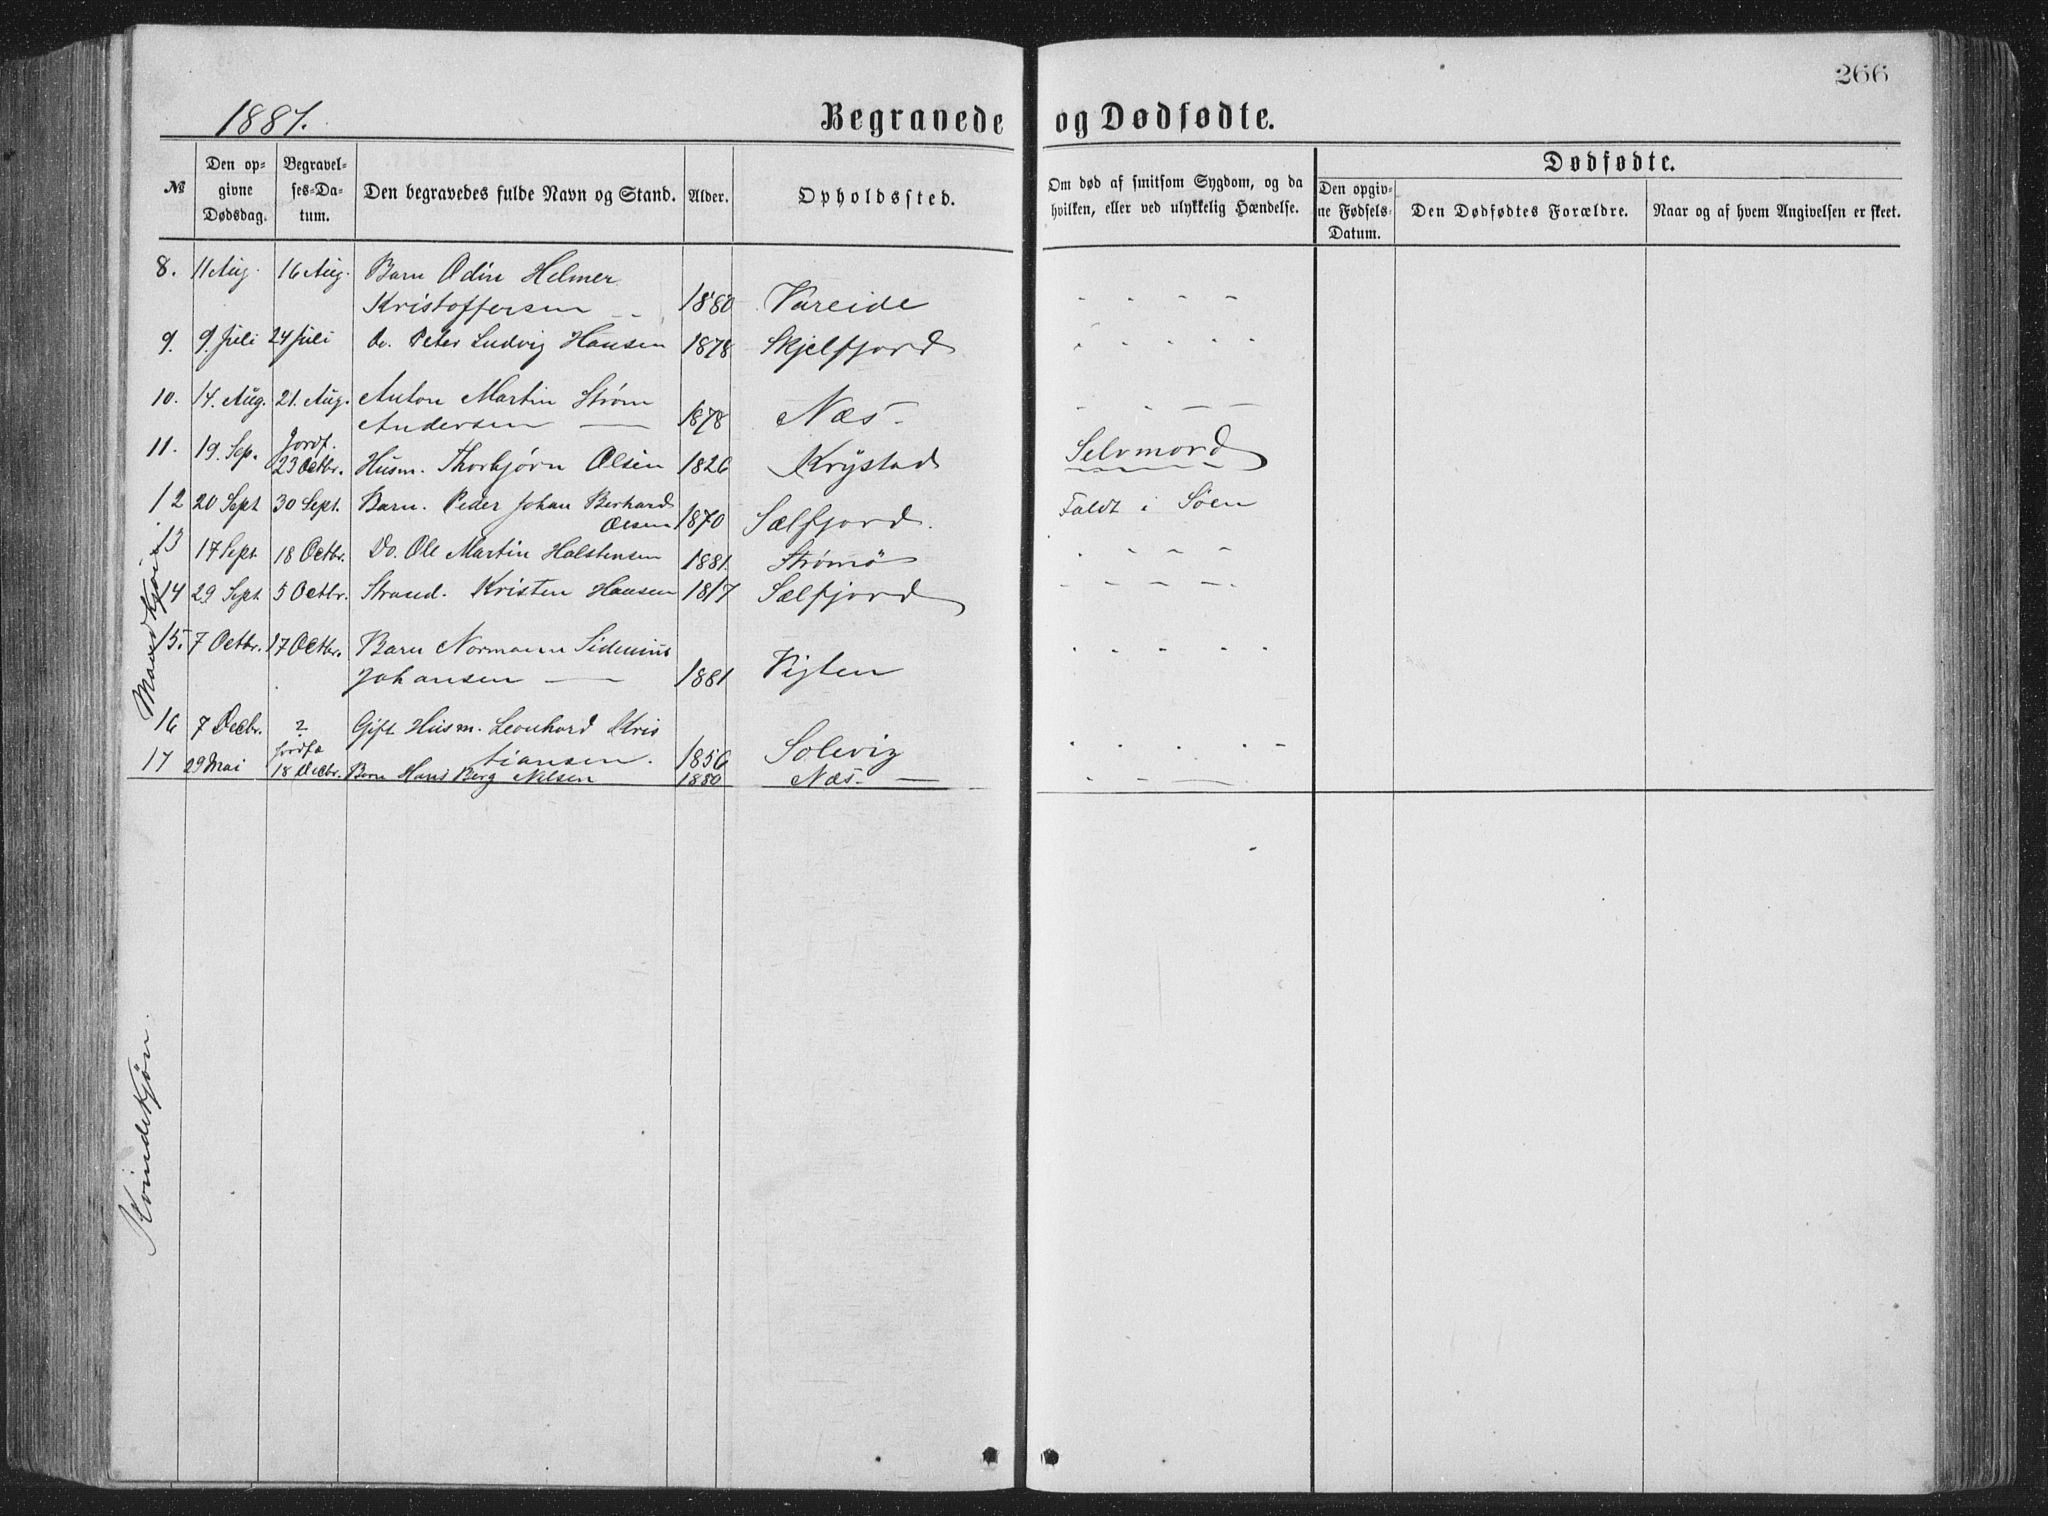 266
1881.
Begravede og Dødfødte.
Dødfødte.
№ Den op- Begravel- Den begravedes fulde Navn og Stand. Alder. Opholdssted. Om død af smitsom Sygdom, og da Den opgiv- Den Dødfødtes Forældre. Naar og af hvem Angivelsen er skeet.
givne ses-Da- hvilken, eller ved ulykkelig Hændelse. ne Fødsels-
Dødsdag. tum. Datum.
8. 11 Aug. 16 Aug. Barn Odin Helmer
Kristoffersen 1880 Vareide
9. 9. Juli 24 Juli Do. Peter Ludvig Hansen 1878 Skjelfjord
10. 14. Aug. 21. Aug. Anton Martin Strøm
Andersen — 1878 Næs.
Jordf.
11. 19. Sep. 23 Octbr. Husm. Thorbjørn Olsen 1826 Krystad Selvmord
12 20 Sept 30 Sept. Barn. Peder Johan Berhard
Olsen 1870 Sælfjord. Faldt i Søen
13 17 Sept. 18 Octbr. Do. Ole Martin Halstensen 1881. Strømø
14 29 Sept. 5 Octbr. Strand. Kristen Hansen 1817 Sælfjord
15. 7 Octbr. 17 Octbr. Barn Normann Sidenius
Johansen — 1881 Vigten
16 7 Decbr. ? Gift Husm. Leonhard Kris
tiansen. 1856 Solevig
Jordfæ
17 29 Mai 18 Decbr. Barn Hans Berg Nilsen 1880 Næs —
Mandkjøn
Kvindekjøn.